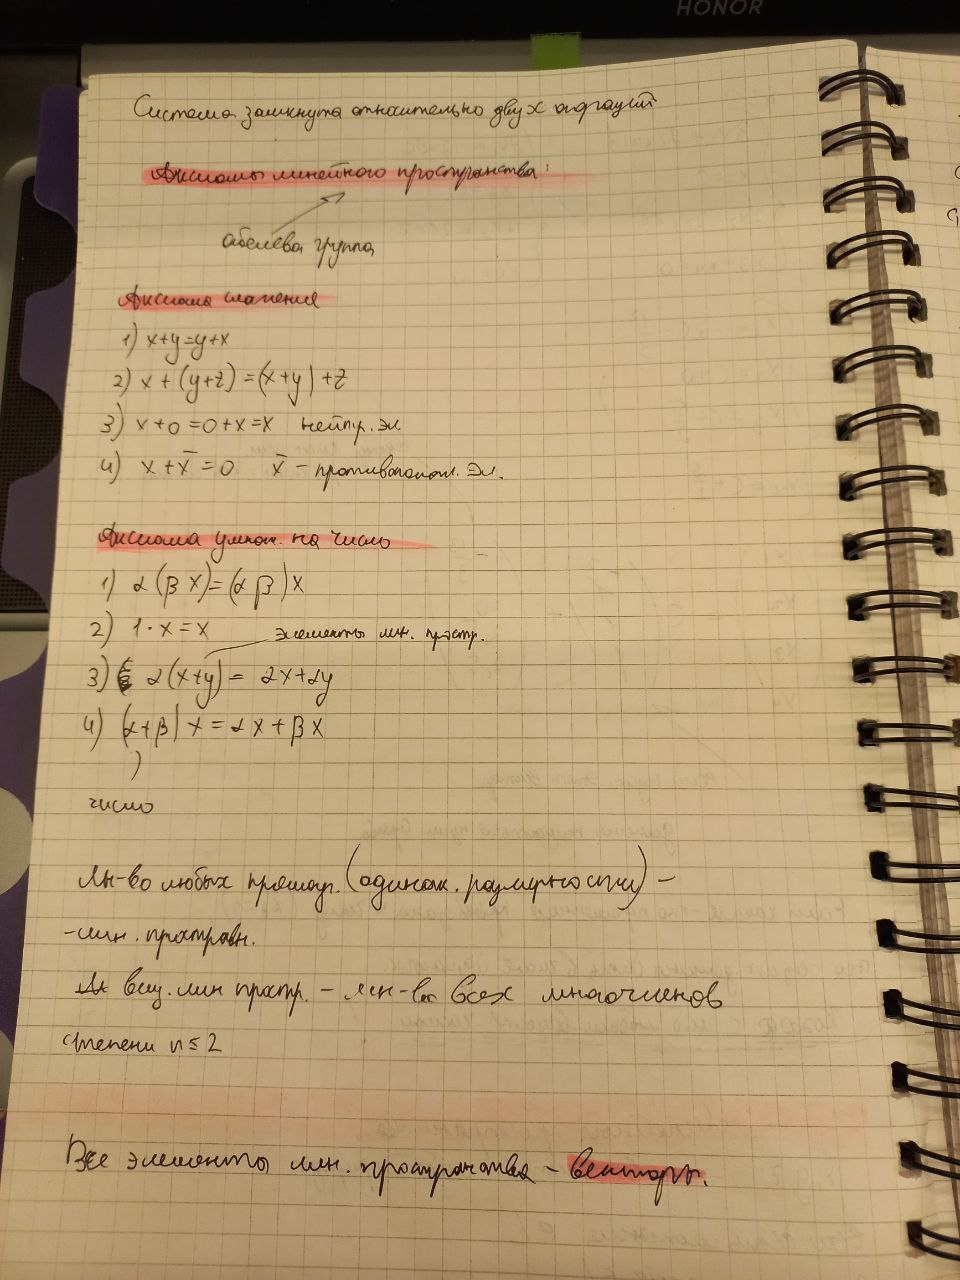 HONOR
Система замкнута относительно двух операций
Аксиомы линейного пространства:
абелева группа
Аксиома сложения
1) x+y=y+x
2) x+(y+z)=(x+y)+z
3) x+0=0+x=x нейтр. эл.
4) x+x̄=0 x̄ - противополож. эл.
Аксиома умнож. на число
1) α(βx)=(αβ)x
2) 1·x=x
элементы лин. простр.
3) α(x+y)= αx+αy
4) (α+β)x=αx+βx
число
Мн-во любых (одинак. размерности) -
- лин. простран.
вещ. лин простр. - мн-во всех многочленов
степени n≤2
Все элементы лин. пространства - векторы.